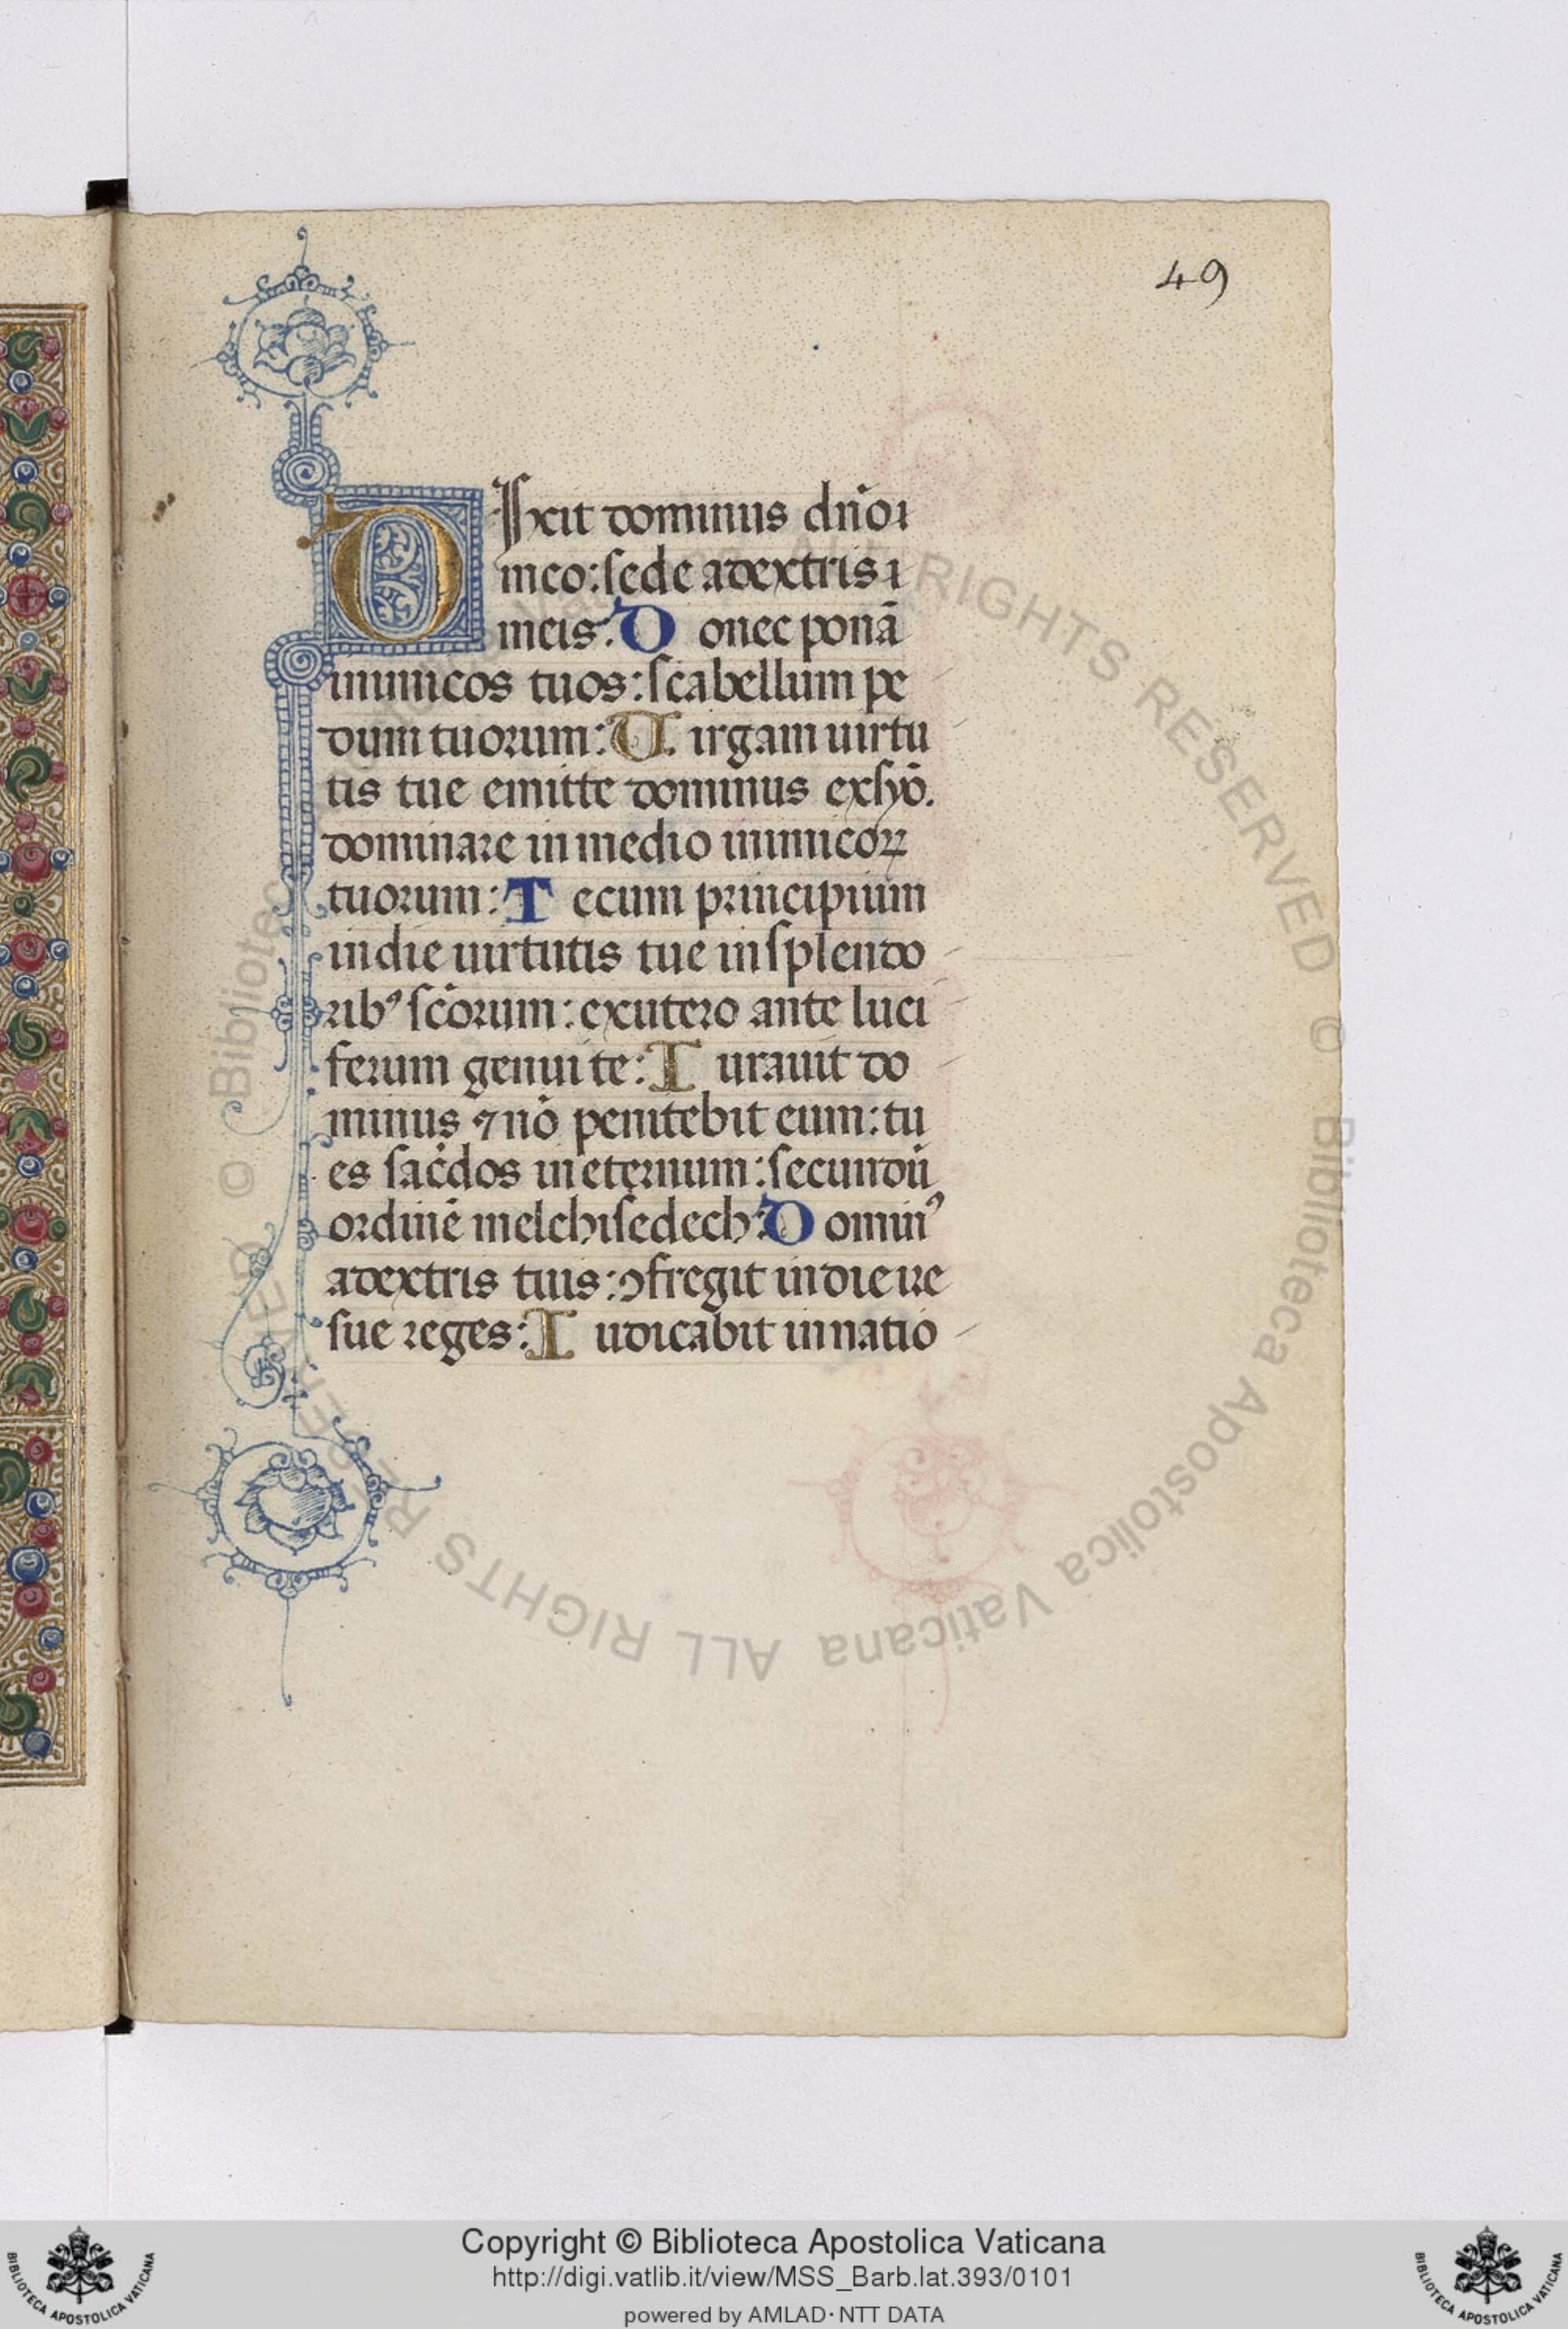 49
Dixit dominus dn̄o ı
meo: sede adextris ı
meis: Donec ponā
inimicos tuos: scabellum pe
dum tuorum: Uirgam uirtu
tis tue emitte dominus exsyō.
dominare in medio inimicoꝝ
tuorum: Tecum principium
indie uirtutis tue insplendo
ribꝰ scōrum: exutero ante luci
ferum genui te: Iurauit do
minus ⁊ nō penitebit eum: tu
es sac̄dos ineternum: secundū
ordinē melchisedech: Dominꝰ
adextris tuis: ꝯfregit indie ire
sue reges: Iudicabit innatio
© Biblioteca Apostolica Vaticana ALL RIGHTS RESERVED
© Biblioteca Apostolica Vaticana ALL RIGHTS RESERVED
Copyright © Biblioteca Apostolica Vaticana
http://digi.vatlib.it/view/MSS_Barb.lat.393/0101
powered by AMLAD·NTT DATA
BIBLIOTECA APOSTOLICA VATICANA
BIBLIOTECA APOSTOLICA VATICANA